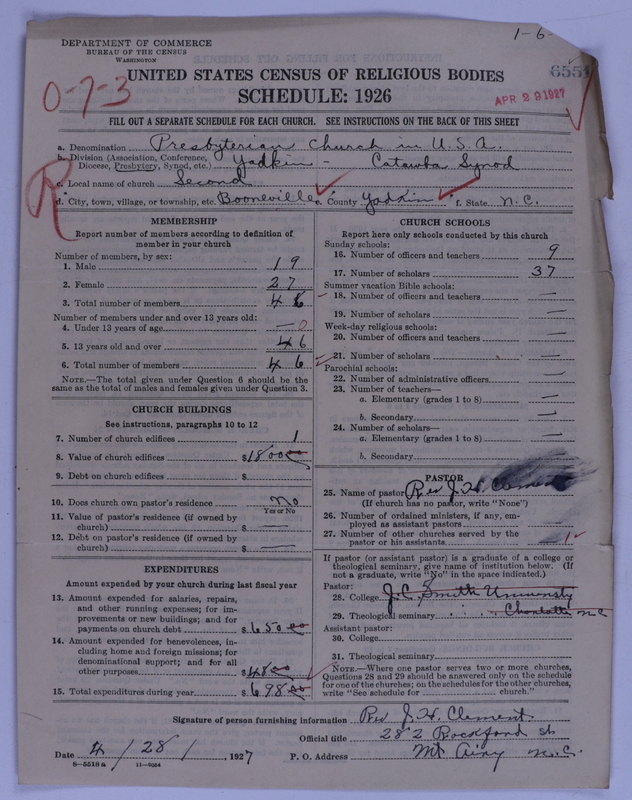 1-6-
DEPARTMENT OF COMMERCE
BUREAU OF THE CENSUS
WASHINGTON
6551
APR 29 1927
0-7-3
UNITED STATES CENSUS OF RELIGIOUS BODIES
SCHEDULE: 1926
FILL OUT A SEPARATE SCHEDULE FOR EACH CHURCH. SEE INSTRUCTIONS ON THE BACK OF THIS SHEET
a. Denomination Presbyterian Church in U.S.A.
b. Division (Association, Conference, Diocese, Presbytery, Synod, etc.) Yadkin - Catawba Synod
R
c. Local name of church Second
d. City, town, village, or township, etc. Booneville e. County Yadkin f. State N.C.
MEMBERSHIP
Report number of members according to definition of
member in your church
Number of members, by sex:
1. Male 19
2. Female 27
3. Total number of members 46
Number of members under and over 13 years old:
4. Under 13 years of age — 0
5. 13 years old and over 46
6. Total number of members 46
NOTE.—The total given under Question 6 should be the
same as the total of males and females given under Question 3.
CHURCH BUILDINGS
See instructions, paragraphs 10 to 12
7. Number of church edifices 1
8. Value of church edifices $1800
9. Debt on church edifices $
10. Does church own pastor's residence No
Yes or No
11. Value of pastor's residence (if owned by
church) $ —
12. Debt on pastor's residence (if owned by
church) $ —
EXPENDITURES
Amount expended by your church during last fiscal year
13. Amount expended for salaries, repairs,
and other running expenses; for im-
provements or new buildings; and for
payments on church debt $650.00
14. Amount expended for benevolences, in-
cluding home and foreign missions; for
denominational support; and for all
other purposes $48.00
15. Total expenditures during year $698.00
CHURCH SCHOOLS
Report here only schools conducted by this church
Sunday schools:
16. Number of officers and teachers 9
17. Number of scholars 37
Summer vacation Bible schools:
18. Number of officers and teachers —
19. Number of scholars —
Week-day religious schools:
20. Number of officers and teachers —
21. Number of scholars —
Parochial schools:
22. Number of administrative officers —
23. Number of teachers—
a. Elementary (grades 1 to 8) —
b. Secondary —
24. Number of scholars—
a. Elementary (grades 1 to 8) —
b. Secondary
PASTOR
25. Name of pastor Rev J. H. Clement
(If church has no pastor, write "None")
26. Number of ordained ministers, if any, em-
ployed as assistant pastors —
27. Number of other churches served by the
pastor or his assistants 1
If pastor (or assistant pastor) is a graduate of a college or
theological seminary, give name of institution below. (If
not a graduate, write "No" in the space indicated.)
Pastor:
28. College J.C. Smith University
29. Theological seminary " " " Charlotte N.C
Assistant pastor:
30. College
31. Theological seminary
NOTE.—Where one pastor serves two or more churches,
Questions 28 and 29 should be answered only on the schedule
for one of the churches; on the schedules for the other churches,
write "See schedule for church."
Signature of person furnishing information Rev J. H. Clement.
Official title 282 Rockford St
Date 4/28/, 1927 P. O. Address Mt Airy N.C.
8-5518a 11-9064